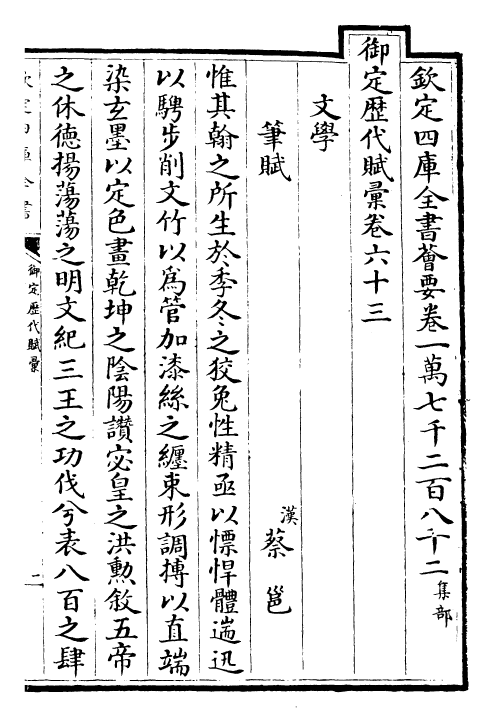 欽定四庫全書薈要卷一萬七千二百八十二集部
御定歴代賦彚卷六十三
文學
筆賦
漢蔡邕
惟其翰之所生於季冬之狡兔性精亟以慓悍體遄迅
以騁步削文竹以爲管加漆絲之纏束形調摶以直端
染玄墨以定色畫乾坤之陰陽讚宓皇之洪勲敘五帝
之休德揚蕩蕩之明文紀三王之功伐兮表八百之肆
欽定四庫全書
御定歴代賦彚
二